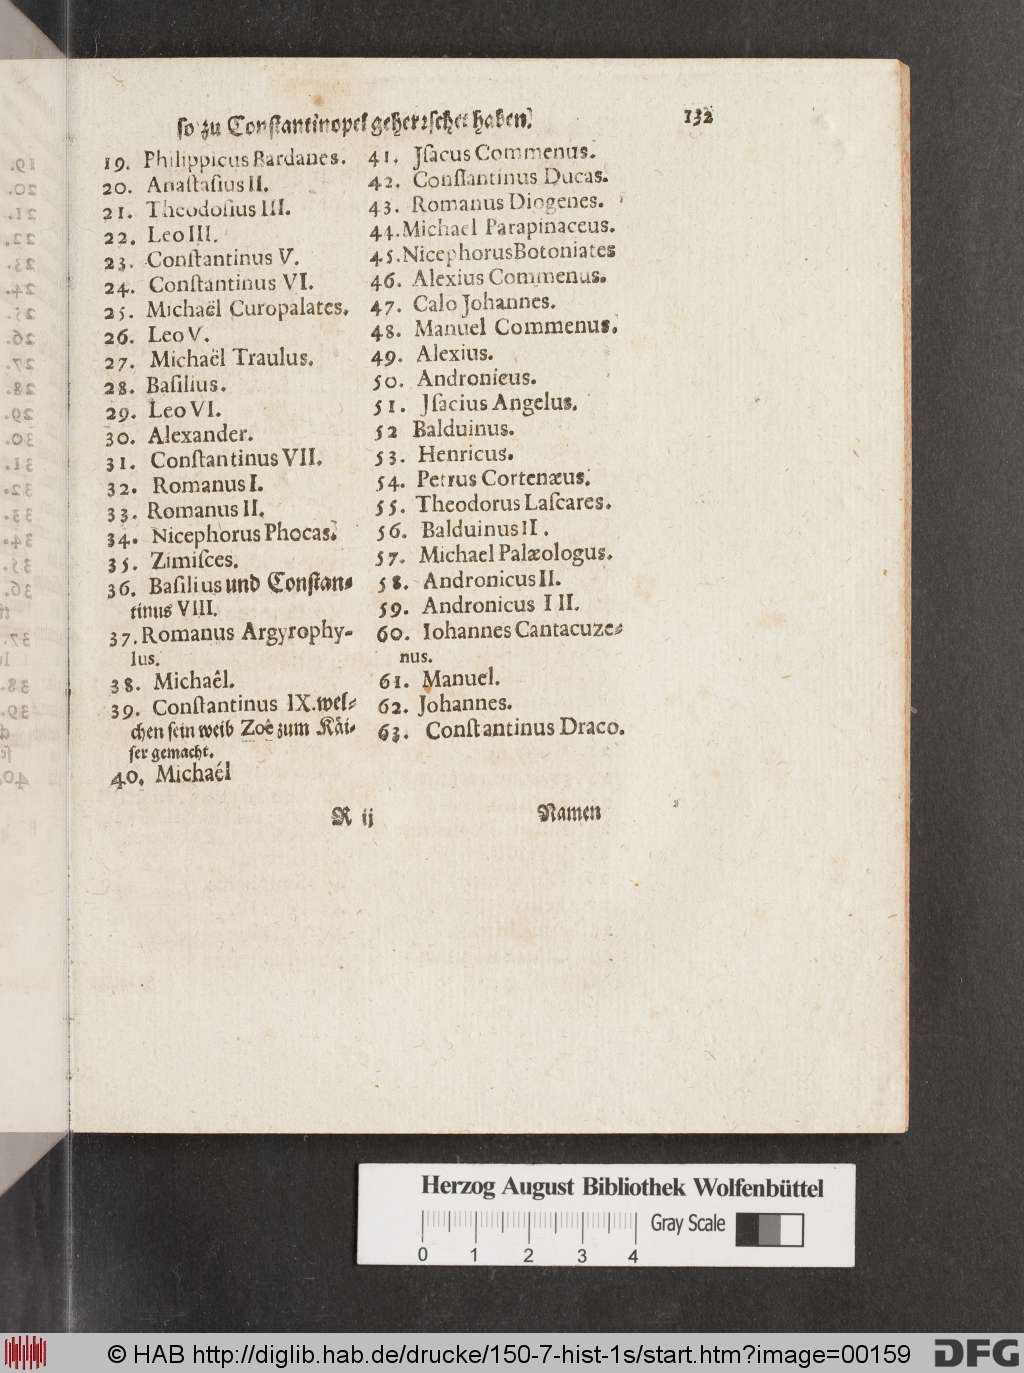 so zu Constantinopel geherꝛschet haben. 132
19. Philippicus Bardanes.
20. Anaſtaſius II.
21. Theodoſius III.
22. Leo III.
23. Conſtantinus V.
24. Conſtantinus VI.
25. Michaël Curopalates.
26. Leo V.
27. Michaël Traulus.
28. Baſilius.
29. Leo VI.
30. Alexander.
31. Conſtantinus VII.
32. Romanus I.
33. Romanus II.
34. Nicephorus Phocas.
35. Zimiſces.
36. Baſilius und Conſtan-
tinus VIII.
37. Romanus Argyrophy-
lus.
38. Michaêl.
39. Conſtantinus IX. wel-
chen ſein weib Zoê zum Kåi-
ſer gemacht.
40. Michaél
41. Jſacus Commenus.
42. Conſtantinus Ducas.
43. Romanus Diogenes.
44. Michael Parapinaceus.
45. Nicephorus Botoniates
46. Alexius Commenus.
47. Calo Johannes.
48. Manuel Commenus.
49. Alexius.
50. Andronicus.
51. Jſacius Angelus.
52 Balduinus.
53. Henricus.
54. Petrus Cortenæus.
55. Theodorus Laſcares.
56. Balduinus II.
57. Michael Palæologus.
58. Andronicus II.
59. Andronicus III.
60. Iohannes Cantacuze-
nus.
61. Manuel.
62. Johannes.
63. Conſtantinus Draco.
R ij Namen
Herzog August Bibliothek Wolfenbüttel
Gray Scale
0 1 2 3 4
© HAB http://diglib.hab.de/drucke/150-7-hist-1s/start.htm?image=00159 DFG